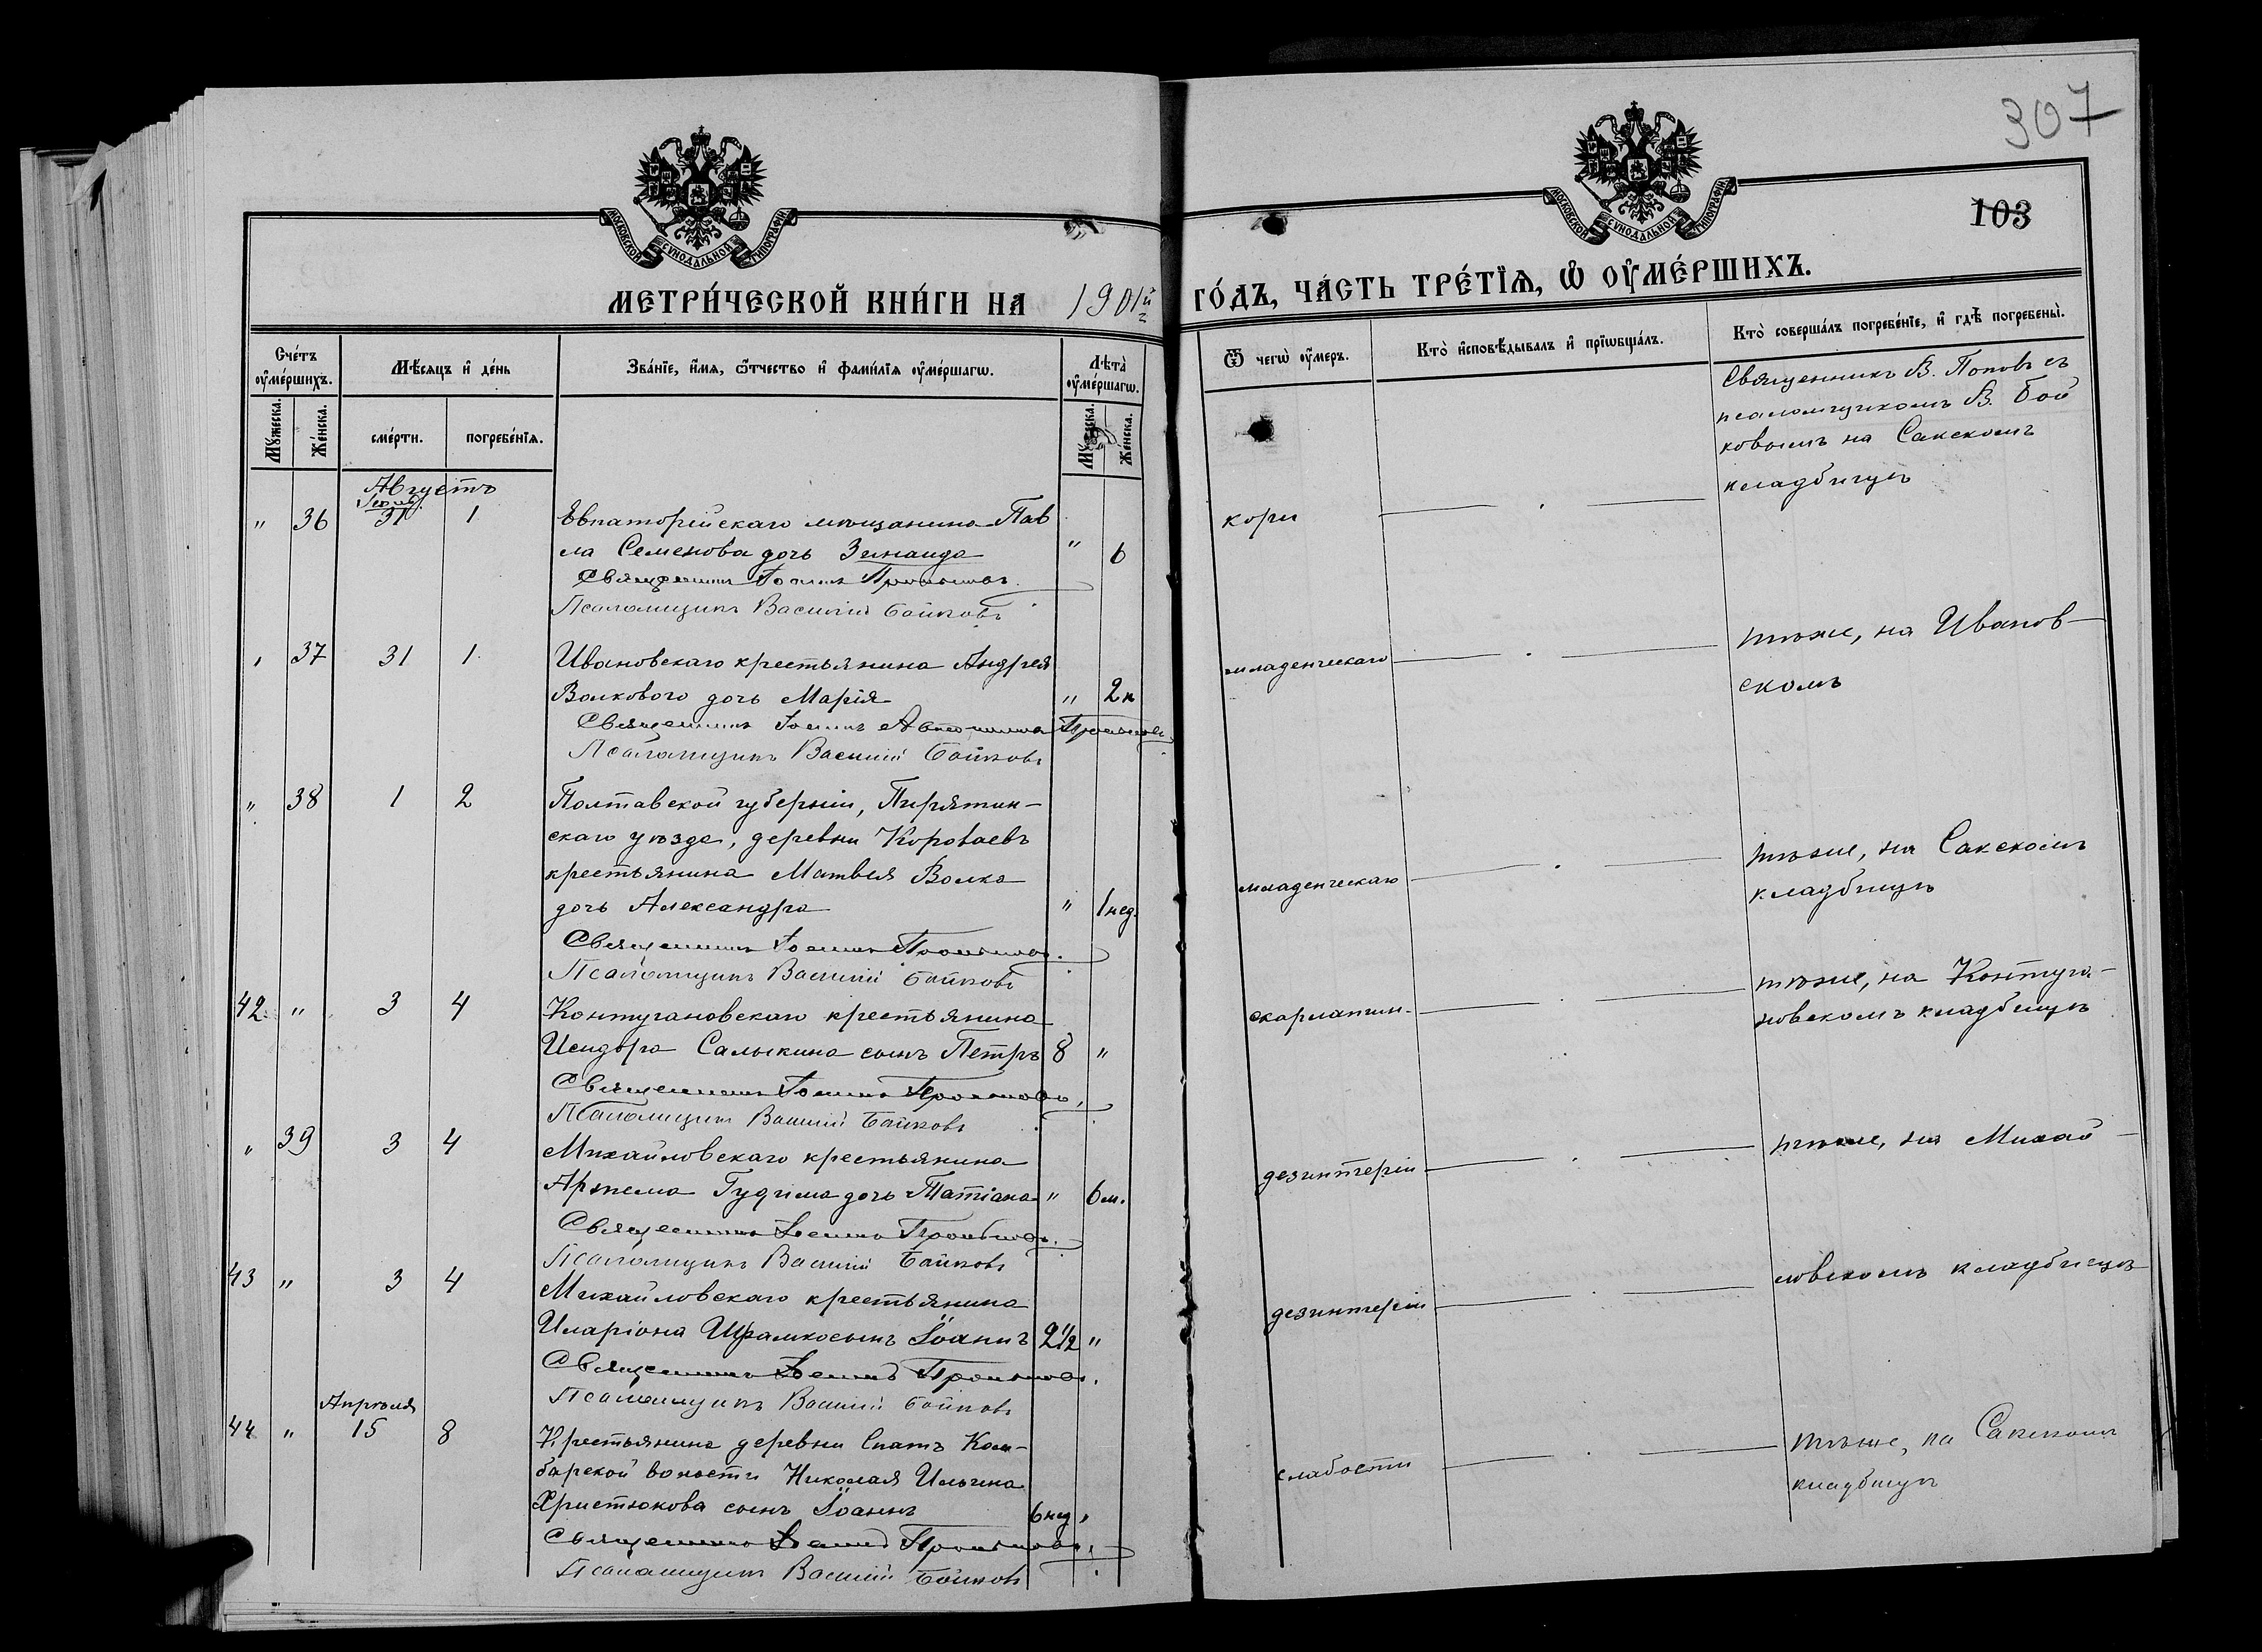 307
103
МОСКОВСКОЙ СѴНОДАЛЬНОЙ ТИПОГРАФІИ.
МОСКОВСКОЙ СѴНОДАЛЬНОЙ ТИПОГРАФІИ.
МЕТРИ́ЧЕСКОЙ КНИ́ГИ НА 1901й г ГО́ДЪ, ЧА́СТЬ ТРЕ́ТЇѦ, Ѽ ОУ҆МЕ́РШИХЪ.
Сче́тъ оу҆ме́ршихъ.
Мꙋ́жеска.
Же́нска.
Мѣ́сяцъ и҆ де́нь
сме́рти.
погребе́нїѧ.
Зва́нїе, и҆́мѧ, ѻ҆́тчество и҆ фами́лїѧ оу҆ме́ршагѡ.
Лѣта̀ оу҆ме́ршагѡ.
Мꙋ́жеска.
Же́нска.
Ѿ чегѡ̀ оу҆́меръ.
Кто̀ и҆сповѣ́дывалъ и҆ прїѡбща́лъ.
Кто̀ соверша́лъ погребе́нїе, и҆ гдѣ̀ погребены̀.
Августъ
" 36 31 1 Евпаторійскаго мѣщанина Пав
ла Семенова дочь Зинаида " 6
Священникъ Іоаннъ
Псаломщикъ Василій Бойковъ
кори
Священникъ В. Поповъ съ
псаломщикомъ В. Бой
ковымъ на Сакскомъ
кладбищѣ
" 37 31 1 Ивановскаго крестьянина Андрея
Волкового дочь Марія " 2 н
Священникъ Іоаннъ
Псаломщикъ Василій Бойковъ
младенческаго
тѣже, на Иванов-
скомъ
" 38 1 2 Полтавской губерніи, Пирятин-
скаго уѣзда, деревни Короваевъ
крестьянина Матвея Волка
дочь Александра " 1 нед.
Священникъ Іоаннъ
Псаломщикъ Василій Бойковъ
младенческаго
тѣже, на Сакскомъ
кладбищѣ
42 " 3 4 Контугановскаго крестьянина
Исидора Салыкина сынъ Петръ 8 "
Священникъ Іоаннъ
Псаломщикъ Василій Бойковъ
скарлатин.
тѣже, на Контуга-
новскомъ кладбищѣ
" 39 3 4 Михайловскаго крестьянина
Артема Гудима дочь Татіана " 6 м.
Священникъ Іоаннъ
Псаломщикъ Василій Бойковъ
дезинтеріи
тѣже, на Михай-
43 " 3 4 Михайловскаго крестьянина
Иларіона Шрамко сынъ Іоаннъ 2 1/2 "
Священникъ Іоаннъ
Псаломщикъ Василій Бойковъ
дезинтеріи
ловскомъ кладбищѣ
Апрѣля
44 " 15 8 Крестьянина деревни Спатъ Кам-
барской волости Николая Ильина
Христюкова сынъ Іоаннъ 6 нед "
Священникъ Іоаннъ
Псаломщикъ Василій Бойковъ
слабости
тѣже, на Сакскомъ
кладбищѣ